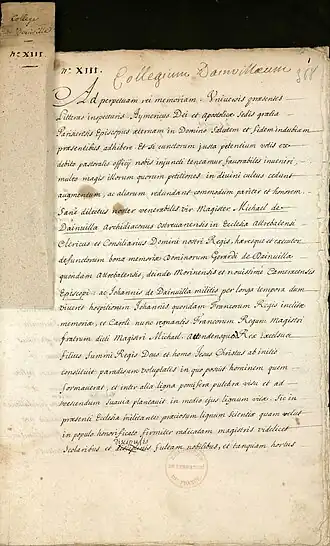 College
de Dainville
nº XIII.
nº XIII.
Collegium Dainvillæum
368
Ad perpetuam rei memoriam. Universis præsentes
Litteras inspecturis Aymericus Dei et Apostolicæ Sedis gratia
Parisiensis Episcopus æternam in Domino Salutem et fidem indubiam
præsentibus adhibere. Et si cunctorum justa petentium votis ex
debito pastoralis officij nobis injuncti teneamur favorabiles inveniri,
multo magis illorum quorum petitiones in divini cultus cedunt
augmentum, ac aliorum redundant commodum pariter et honorem.
Sane dilectus noster venerabilis vir Magister Michael de
Dainvilla Archidiaconus in Ecclesia Attrebatensi
Clericus et Consiliarius Domini nostri Regis, hæresque et executor
defunctorum bonæ memoriæ Dominorum Gerardi de Dainvilla
quondam Attrebatensis, deinde Morinensis et novissime Cameracensis
Episcopi ac Johannis de Dainvilla militis per longa tempora dum
viveret hospitiorum Johannis quondam Francorum Regis inclitæ
memoriæ, et Caroli nunc regnantis Francorum Regum Magistri
fratrum dicti Magistri Michael. Attendensque Rex excelsus
filius Summi Regis Deus et homo Jesus Christus ab initio
constituit paradisum voluptatis in quo posuit hominem quem
formaverat, et inter alia ligna pomifera pulchra visu et ad
vescendum suavia plantavit in medio ejus lignum vitæ. Sic in
præsenti Ecclesia militantes præciosum lignum scientiæ quam velut
in populo honorificato firmiter radicatam magistris videlicet
Scolaribus et discipulis fultam nobilibus, et tanquam hortus